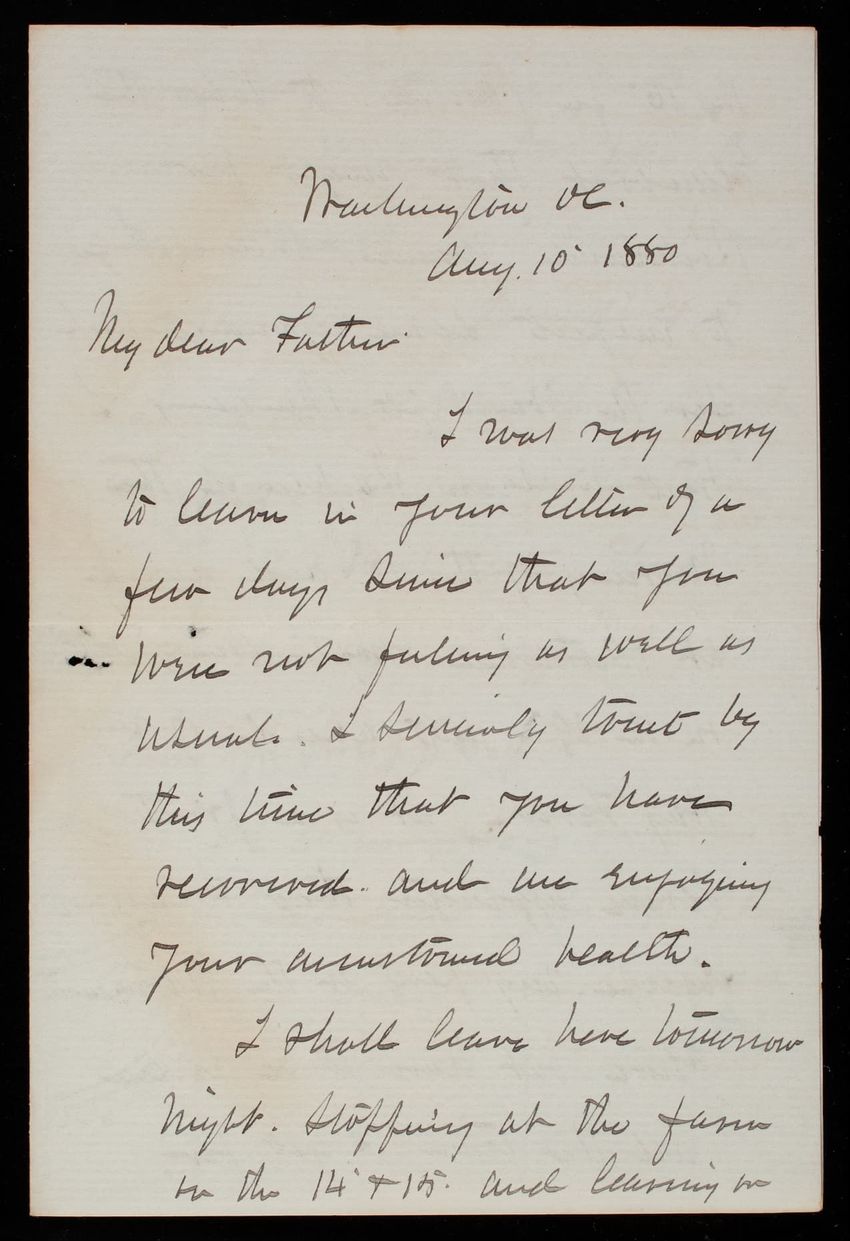 Washington DC.
Aug. 10 1880
My dear Father
I was very sorry
to learn in your letter of a
few days since that you
were not feeling as well as
usual. I sincerely trust by
this time that you have
recovered. and are enjoying
your accustomed health.
I shall leave here tomorrow
night. Stopping at the farm
on the 14 & 15. and leaving on